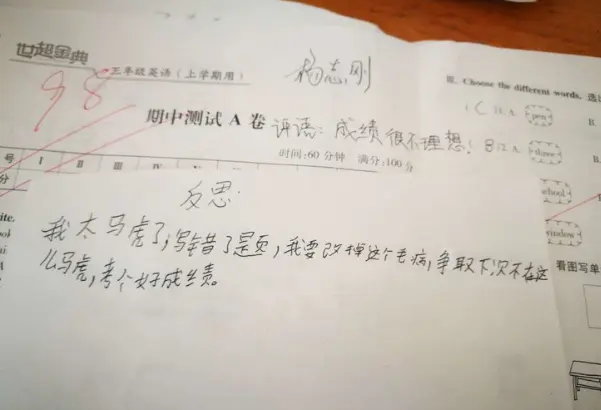 世超金典
三年级英语(上学期用)
杨志刚
98
期中测试 A 卷
评语:成绩很不理想!
时间:60 分钟 满分:100 分
号 I II III IV
分
反思:
我太马虎了,写错了是页,我要改掉这个毛病,争取下次不在这
么马虎,考个好成绩。
Ⅲ. Choose the different words. 选
1. A. pen B.
2. A. three B.
school
window
看图写单
ite.